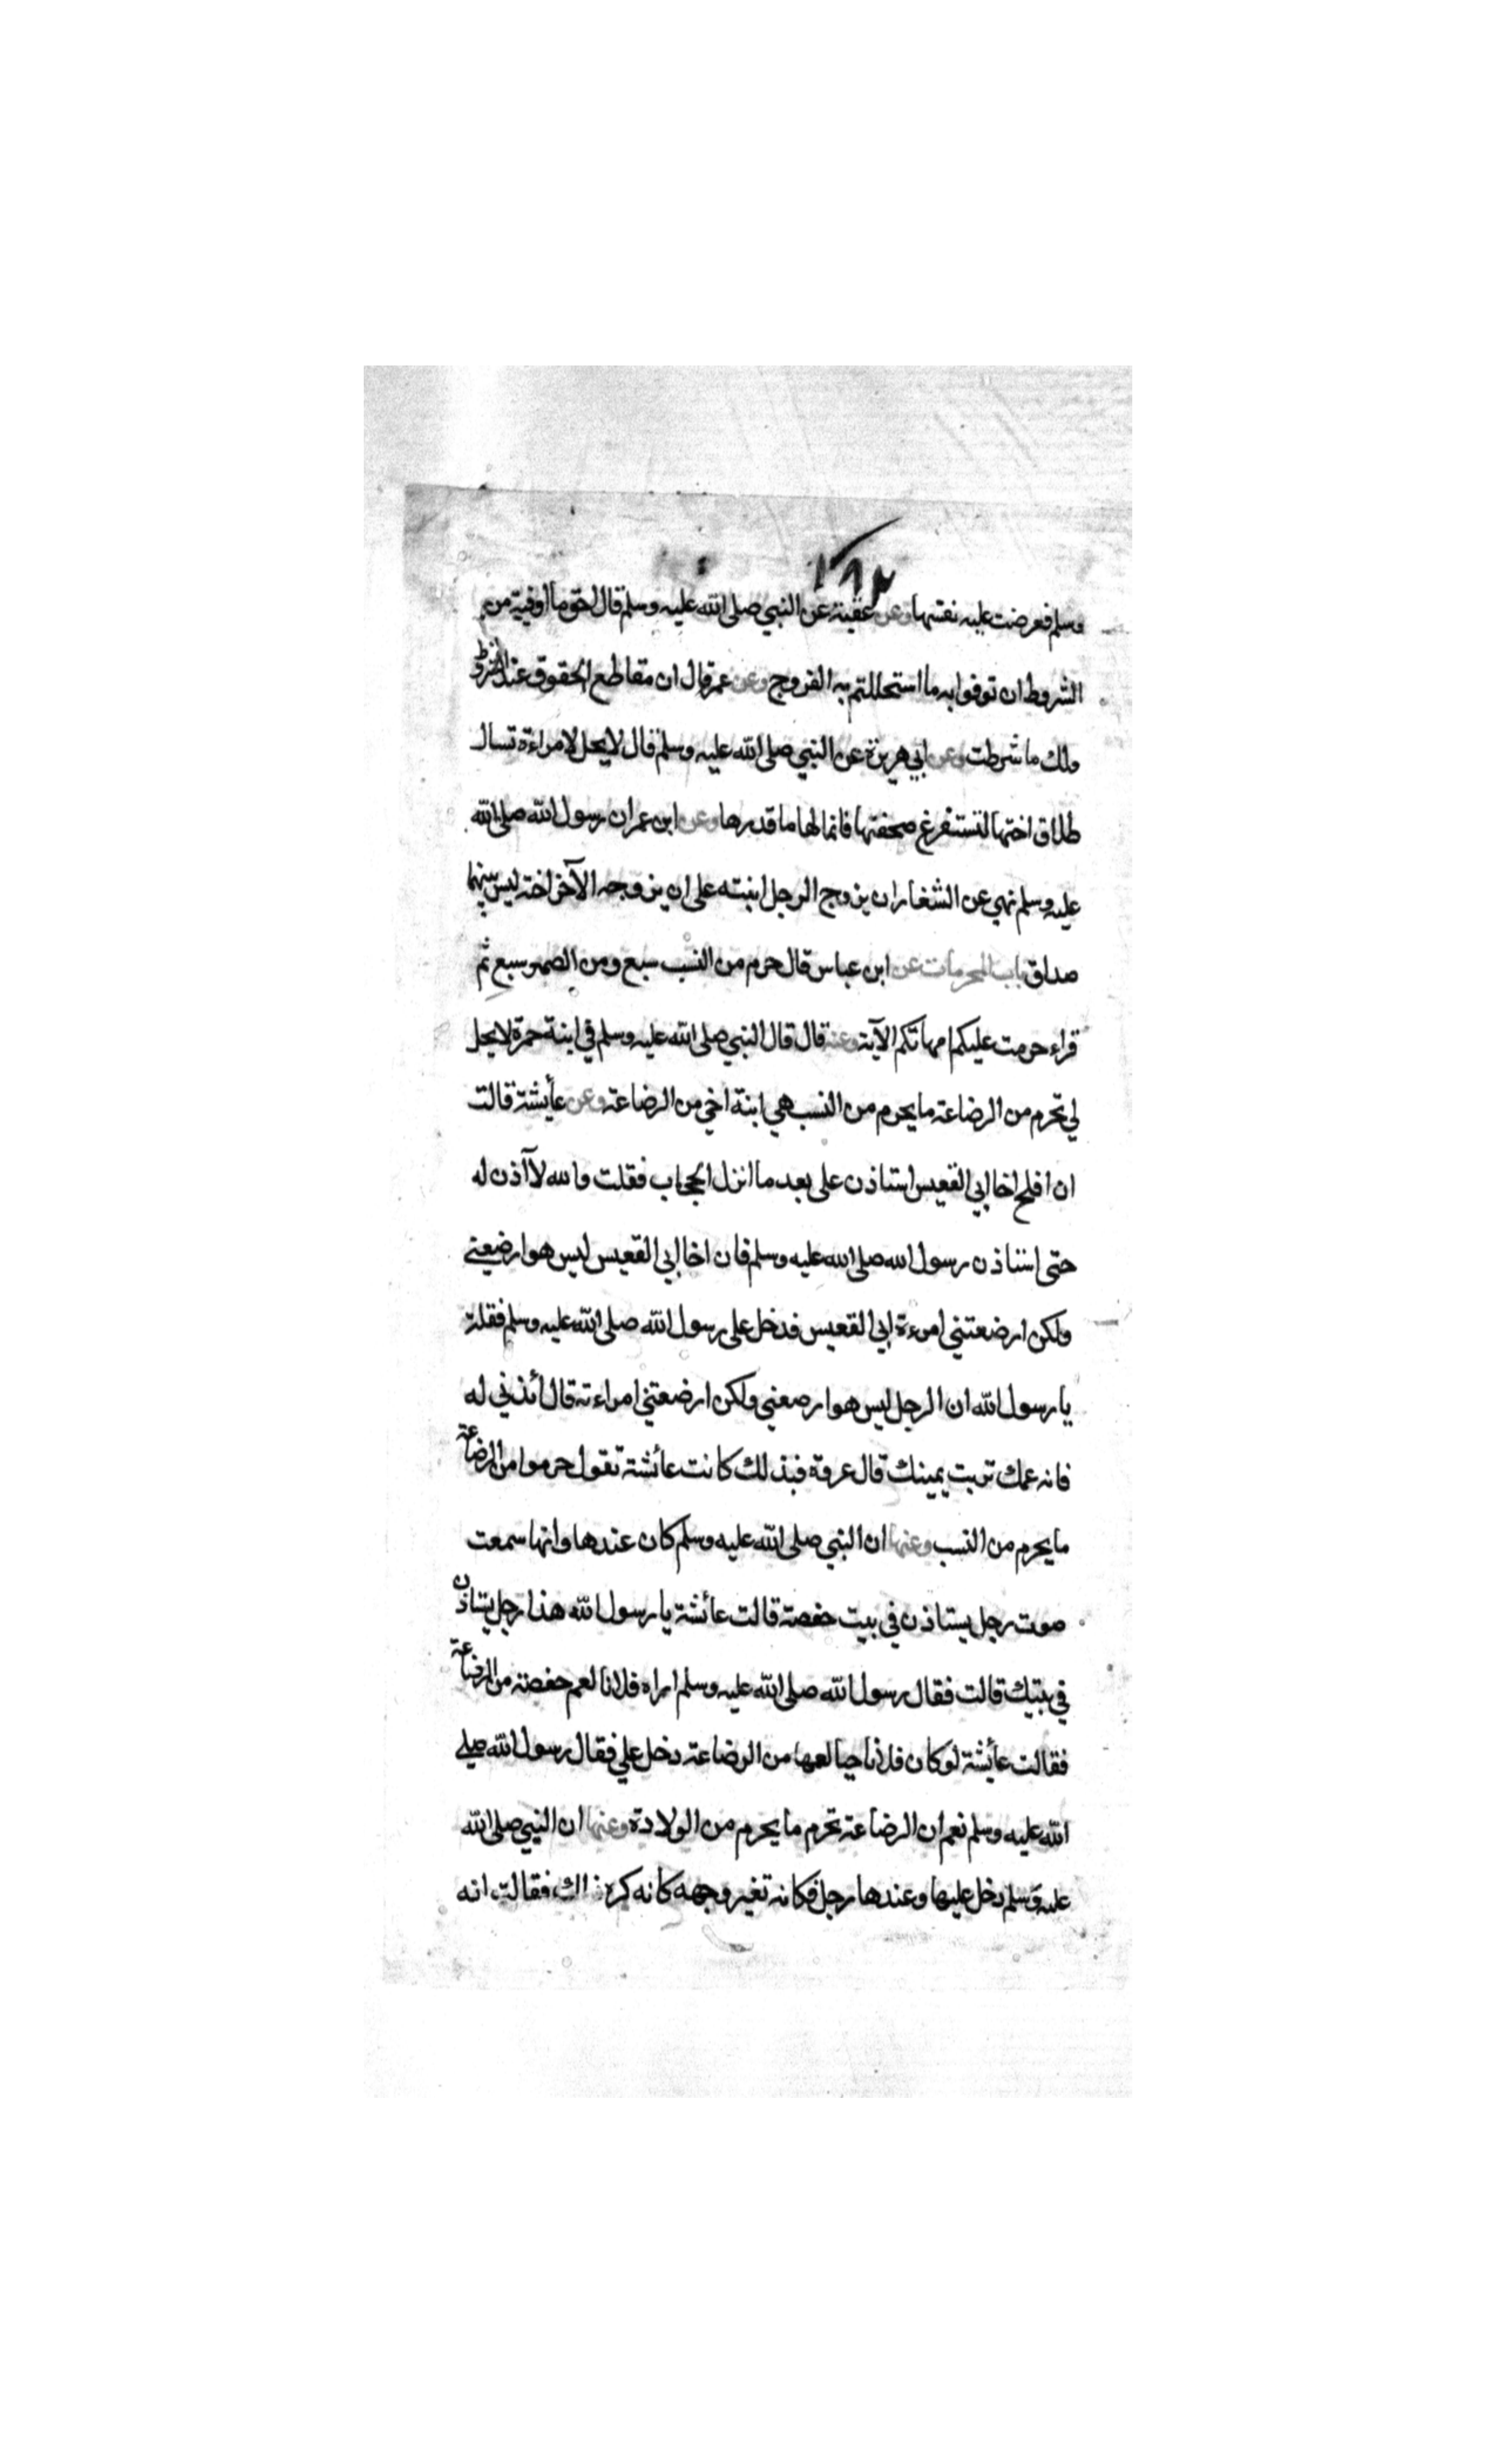 ١٩٢
وسلم فعرضت عليه نفسها وعن عقبة عن النبي صلى الله عليه وسلم قال احق ما اوفيتم من
الشروط ان توفوا به ما استحللتم به الفروج وعن عمر قال ان مقاطع الحقوق عند الشروط
ولك ما شرطت وعن ابي هريرة عن النبي صلى الله عليه وسلم قال لا يحل لامراءة تسال
طلاق اختها لتستفرغ صحفتها فانما لها ما قدر لها وعن ابن عمر ان رسول الله صلى الله
عليه وسلم نهي عن الشغار ان يزوج الرجل ابنته على ان يزوجه الآخر اخته ليس بينهما
صداق باب المحرمات عن ابن عباس قال حرم من النسب سبع ومن الصهر سبع ثم
قراء حرمت عليكم امهاتكم الآية وعنه قال قال النبي صلى الله عليه وسلم في ابنة حمزة لا يحل
لي تحرم من الرضاعة ما يحرم من النسب هي ابنة اخي من الرضاعة وعن عائشة قالت
ان افلح اخا ابي القعيس استاذن علي بعد ما انزل الحجاب فقلت والله لا آذن له
حتى استاذن رسول الله صلى الله عليه وسلم فان اخا ابي القعيس ليس هو ارضعني
ولكن ارضعتني امرءة ابي القعيس فدخل علي رسول الله صلى الله عليه وسلم فقلت
يا رسول الله ان الرجل ليس هو ارضعني ولكن ارضعتني امراءته قال ائذني له
فانه عمك تربت يمينك قال عروة فبذلك كانت عائشة تقول حرموا من الرضاعة
ما يحرم من النسب وعنها ان النبي صلى الله عليه وسلم كان عندها وانها سمعت
صوت رجل يستاذن في بيت حفصة قالت عائشة يا رسول الله هذا رجل يستاذن
في بيتك قالت فقال رسول الله صلى الله عليه وسلم اراه فلانا لعم حفصة من الرضاعة
فقالت عائشة لو كان فلانا حيا لعمها من الرضاعة دخل علي فقال رسول الله صلى
الله عليه وسلم نعم ان الرضاعة تحرم ما يحرم من الولادة وعنها ان النبي صلى الله
عليه وسلم دخل عليها وعندها رجل فكانه تغير وجهه كانه كره ذلك فقالت انه